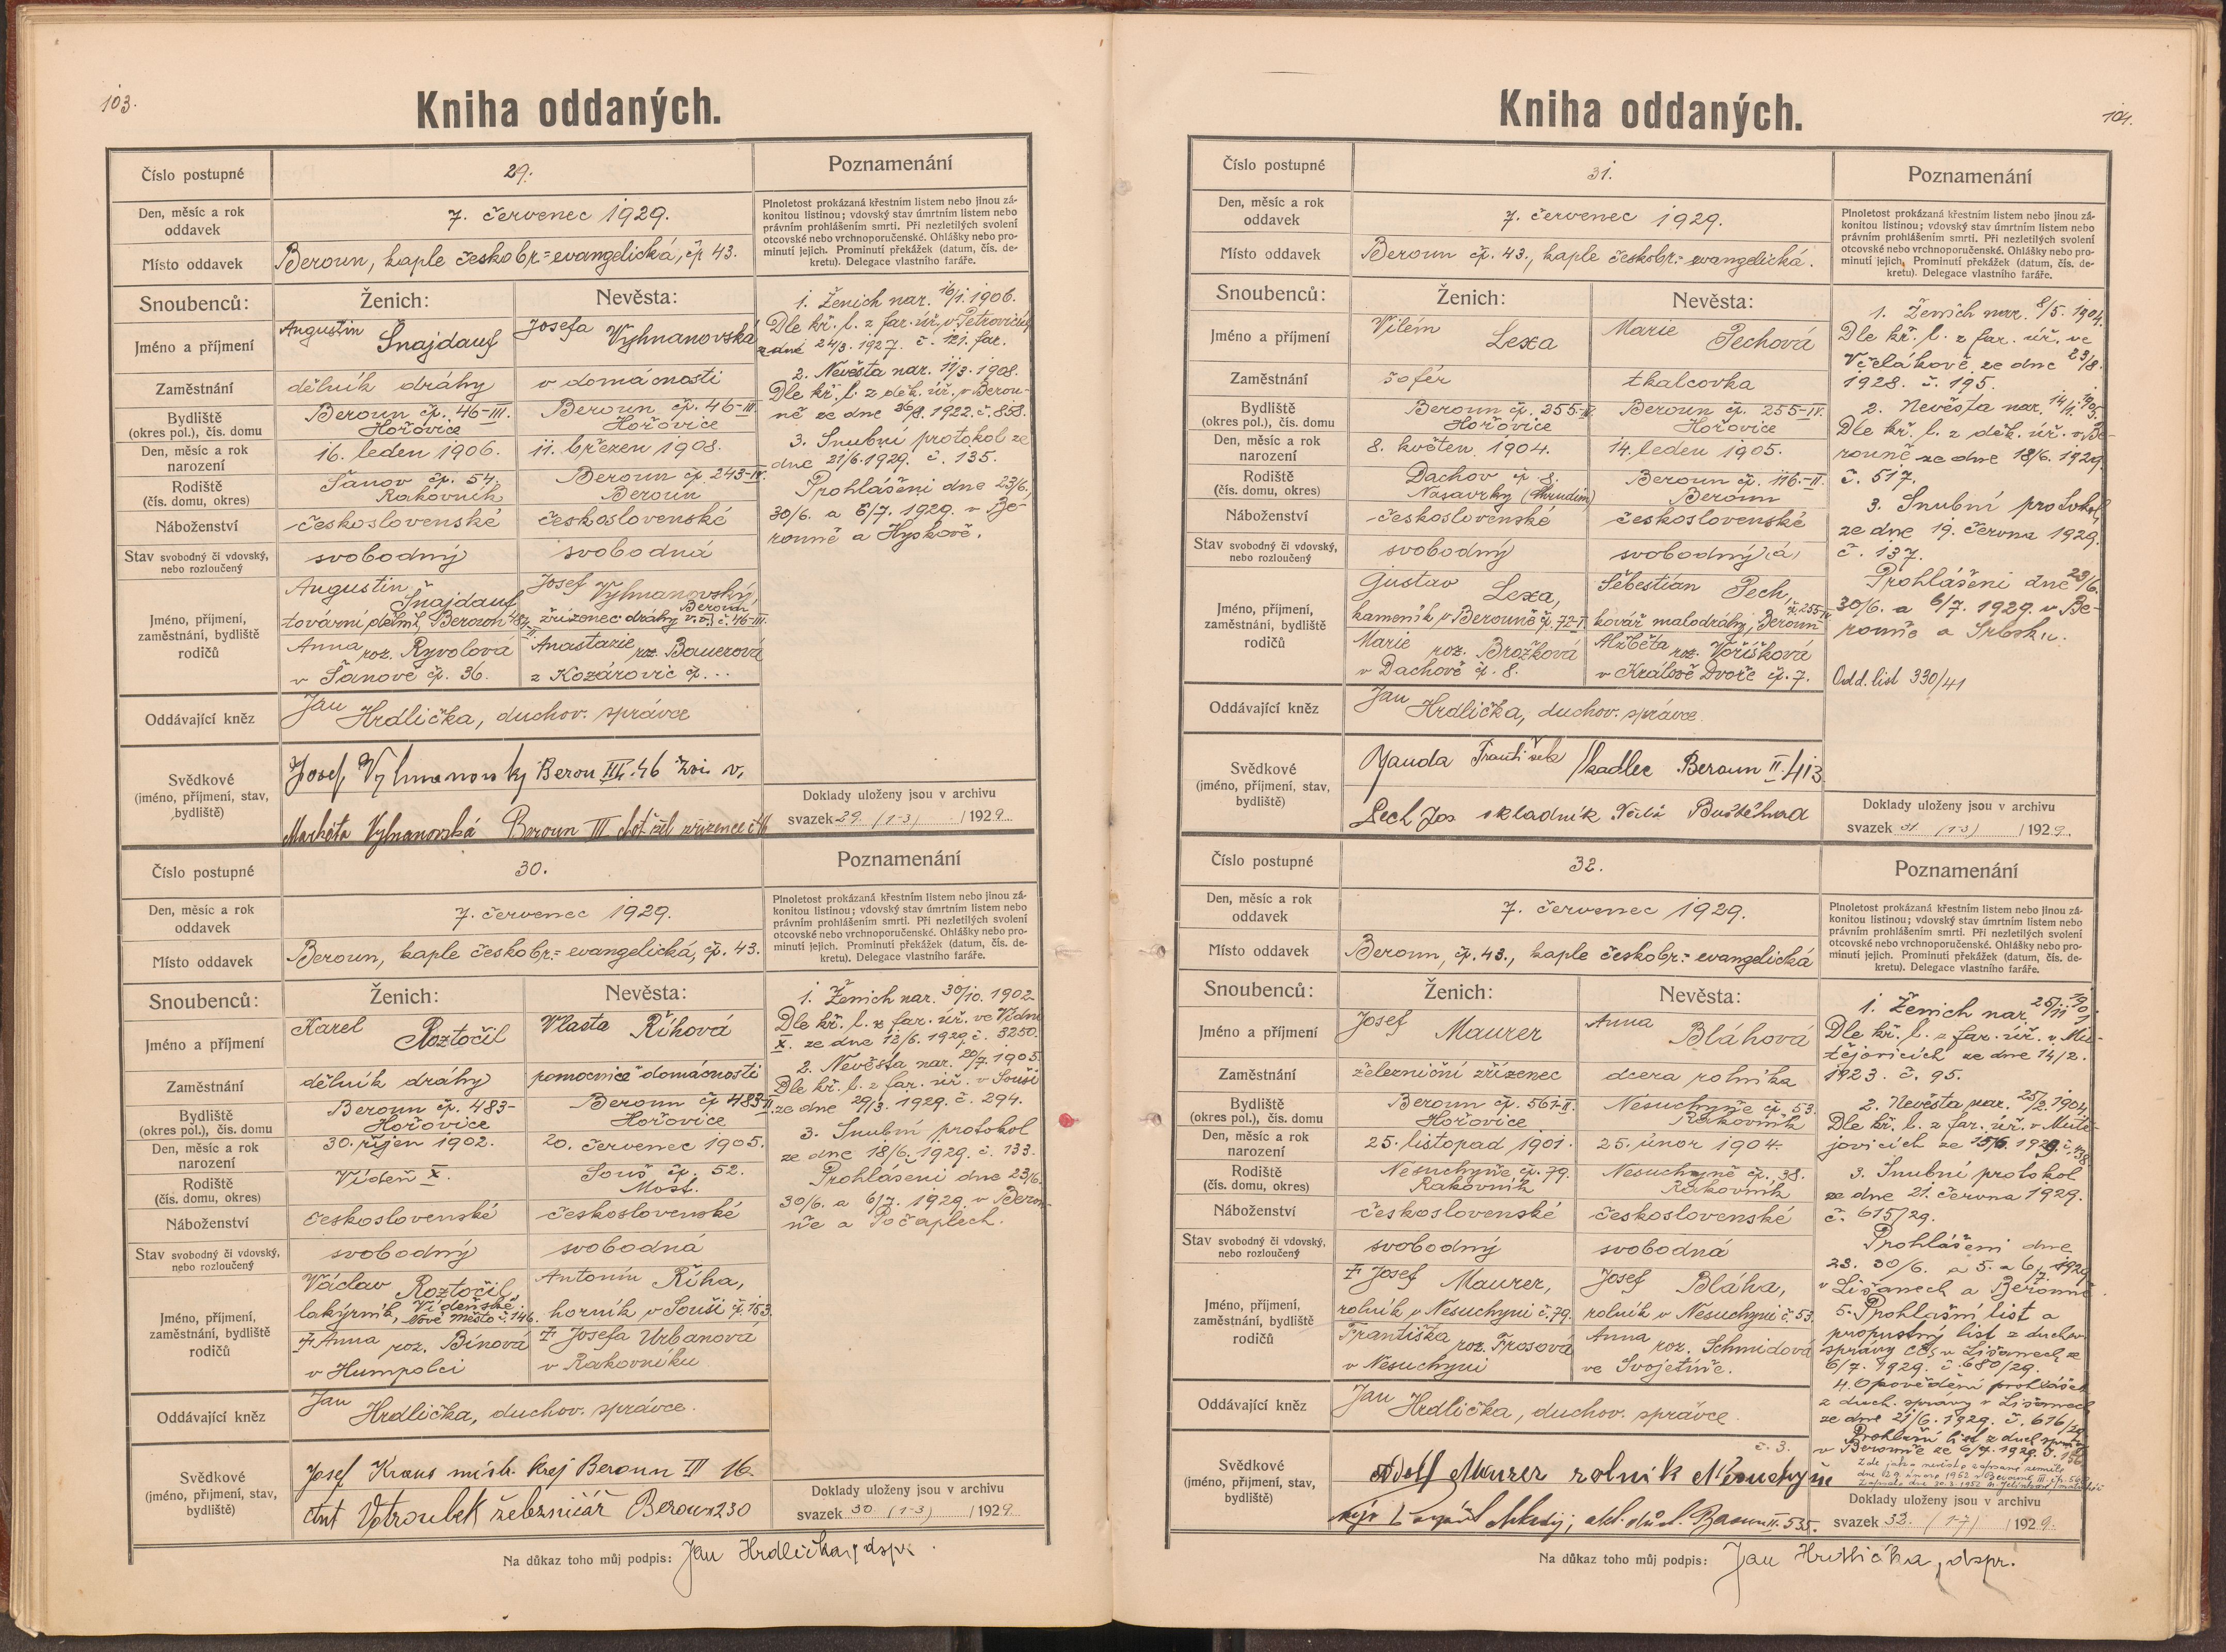 103.
Kniha oddaných.
Číslo postupné
29.
Poznamenání
Den, měsíc a rok
oddavek
7. červenec 1929.
Plnoletost prokázaná křestním listem nebo jinou zá-
konitou listinou; vdovský stav úmrtním listem nebo
právním prohlášením smrti. Při nezletilých svolení
otcovské nebo vrchnoporučenské. Ohlášky nebo pro-
minutí jejich. Prominutí překážek (datum, čís. de-
kretu). Delegace vlastního faráře.
Místo oddavek
Beroun, kaple českobr.=evangelická, čp 43.
Snoubenců:
Ženich:
Nevěsta:
Jméno a příjmení
Augustin Šnajdauf
Josefa Vyhnanovská
Zaměstnání
dělník dráhy
v domácnosti
Bydliště
(okres pol.), čís. domu
Beroun čp. 46-III.
Hořovice
Beroun čp. 46-III.
Hořovice
Den, měsíc a rok
narození
16. leden 1906.
11. březen 1908.
Rodiště
(čís. domu, okres)
Šanov čp. 54.
Rakovník
Beroun čp 243-IV.
Beroun
Náboženství
československé
československé
Stav svobodný či vdovský,
nebo rozloučený
svobodný
svobodná
Jméno, příjmení,
zaměstnání, bydliště
rodičů
Augustin
Šnajdauf
tovární dělník, Beroun
Anna roz. Ryvolová
v Šanově čp. 36.
Josef Vyhnanovský,
zřízenec dráhy v.v. Beroun č. 46-III.
Anastazie roz. Bauerová
z Kozárovic čp...
1. Ženich nar. 16/1. 1906.
Dle kř. l. z far. úř. v Petrovicích
ze dne 24/3. 1927. č. 121. far.
2. Nevěsta nar. 11/3. 1908.
Dle kř. l. z děk. úř. v Berou-
ně ze dne 1922. č. 858.
3. Snubní protokol ze
dne 21/6. 1929. č. 135.
Prohlášení dne 23/6.,
30/6. a 6/7. 1929. v Be-
rouně a Hyskově.
Oddávající kněz
Jan Hrdlička, duchov. správce
Svědkové
(jméno, příjmení, stav,
bydliště)
Josef Vyhnanovský Beroun III. 46 v.
Markéta Vyhnanovská Beroun III
Doklady uloženy jsou v archivu
svazek 29 (1-3) / 1929.
Číslo postupné
30.
Poznamenání
Den, měsíc a rok
oddavek
7. červenec 1929.
Plnoletost prokázaná křestním listem nebo jinou zá-
konitou listinou; vdovský stav úmrtním listem nebo
právním prohlášením smrti. Při nezletilých svolení
otcovské nebo vrchnoporučenské. Ohlášky nebo pro-
minutí jejich. Prominutí překážek (datum, čís. de-
kretu). Delegace vlastního faráře.
Místo oddavek
Beroun, kaple českobr.=evangelická, čp. 43.
Snoubenců:
Ženich:
Nevěsta:
Jméno a příjmení
Karel Roztočil
Vlasta Říhová
Zaměstnání
dělník dráhy
pomocnice v domácnosti
Bydliště
(okres pol.), čís. domu
Beroun čp. 483-
Hořovice
Beroun čp 483-II.
Hořovice
Den, měsíc a rok
narození
30. říjen 1902.
20. červenec 1905.
Rodiště
(čís. domu, okres)
Vídeň X.
Souš čp. 52.
Most.
Náboženství
československé
československé
Stav svobodný či vdovský,
nebo rozloučený
svobodný
svobodná
Jméno, příjmení,
zaměstnání, bydliště
rodičů
Václav Roztočil,
lakýrník, Vídeňské
Nové Město č. 146.
† Anna roz. Bínová
v Humpolci
Antonín Říha,
horník v Souši čp. 153
† Josefa Urbanová
v Rakovníku
1. Ženich nar. 30/10. 1902.
Dle kř. l. z far. úř. ve Vídni
X. ze dne 12/6. 1929. č. 3250.
2. Nevěsta nar. 20/7. 1905.
Dle kř. l. z far. úř. v Souši
ze dne 29/3. 1929. č. 294.
3. Snubní protokol
ze dne 18/6. 1929. č. 133.
Prohlášení dne 23/6.
30/6. a 6/7. 1929. v Berou-
ně a Počaplech.
Oddávající kněz
Jan Hrdlička, duchov. správce.
Svědkové
(jméno, příjmení, stav,
bydliště)
Josef Kraus mistr. krej Beroun III 16.
Ant Votroubek železničář Beroun 230
Doklady uloženy jsou v archivu
svazek 30 (1-3) / 1929
Na důkaz toho můj podpis: Jan Hrdlička, dspr.
104.
Kniha oddaných.
Číslo postupné
31.
Poznamenání
Den, měsíc a rok
oddavek
7. červenec 1929.
Plnoletost prokázaná křestním listem nebo jinou zá-
konitou listinou; vdovský stav úmrtním listem nebo
právním prohlášením smrti. Při nezletilých svolení
otcovské nebo vrchnoporučenské. Ohlášky nebo pro-
minutí jejich. Prominutí překážek (datum, čís. de-
kretu). Delegace vlastního faráře.
Místo oddavek
Beroun čp. 43., kaple českobr.=evangelická.
Snoubenců:
Ženich:
Nevěsta:
Jméno a příjmení
Vilém Lexa
Marie Pechová
Zaměstnání
šofér
tkalcovka
Bydliště
(okres pol.), čís. domu
Beroun čp. 255-IV.
Hořovice
Beroun čp. 255-IV.
Hořovice
Den, měsíc a rok
narození
8. květen 1904.
14. leden 1905.
Rodiště
(čís. domu, okres)
Dachov čp 8.
Nasavrky (Chrudim)
Beroun čp. 116-II.
Beroun
Náboženství
československé
československé
Stav svobodný či vdovský,
nebo rozloučený
svobodný
svobodný (á)
Jméno, příjmení,
zaměstnání, bydliště
rodičů
Gustav Lexa,
kameník v Berouně čp. 72-I.
Marie roz. Brožková
v Dachově čp. 8.
Šebestián Pech,
kovář malodráhy, Beroun č. 255-IV
Alžběta roz. Voříšková
v Králově Dvoře čp. 7.
1. Ženich nar. 8/5. 1904.
Dle kř. l. z far. úř. ve
Včelákově ze dne 23/8.
1928. č. 195.
2. Nevěsta nar. 14/1. 1905.
Dle kř. l. z děk. úř. v Be-
rouně ze dne 18/6. 1929.
č. 517.
3. Snubní protokol
ze dne 19. června 1929.
č. 137.
Prohlášení dne 23/6.
30/6. a 6/7. 1929. v Be-
rouně a Srbsku.
Odd. list 330/41
Oddávající kněz
Jan Hrdlička, duchov. správce.
Svědkové
(jméno, příjmení, stav,
bydliště)
František tkadlec Beroun II 413
Pech Jos skladník Buštěhrad
Doklady uloženy jsou v archivu
svazek 31 (1-3) / 1929.
Číslo postupné
32.
Poznamenání
Den, měsíc a rok
oddavek
7. červenec 1929.
Plnoletost prokázaná křestním listem nebo jinou zá-
konitou listinou; vdovský stav úmrtním listem nebo
právním prohlášením smrti. Při nezletilých svolení
otcovské nebo vrchnoporučenské. Ohlášky nebo pro-
minutí jejich. Prominutí překážek (datum, čís. de-
kretu). Delegace vlastního faráře.
Místo oddavek
Beroun, čp. 43., kaple českobr.=evangelická
Snoubenců:
Ženich:
Nevěsta:
Jméno a příjmení
Josef Maurer
Anna Bláhová
Zaměstnání
železniční zřízenec
dcera rolníka
Bydliště
(okres pol.), čís. domu
Beroun čp. 561-II.
Hořovice
Nesuchyně čp. 53.
Rakovník
Den, měsíc a rok
narození
25. listopad 1901.
25. únor 1904.
Rodiště
(čís. domu, okres)
Nesuchyně čp. 79.
Rakovník
Nesuchyně čp. 38.
Rakovník
Náboženství
československé
československé
Stav svobodný či vdovský,
nebo rozloučený
svobodný
svobodná
Jméno, příjmení,
zaměstnání, bydliště
rodičů
† Josef Maurer,
rolník v Nesuchyni č. 79.
Františka roz. Frosová
v Nesuchyni
Josef Bláha,
rolník v Nesuchyni č. 53.
Anna roz. Schmidová
ve Svojetíně.
1. Ženich nar. 25/11 1901
Dle kř. l. z far. úř. v Mu-
tějovicích ze dne 14/2.
1923. č. 95.
2. Nevěsta nar. 25/2. 1904.
Dle kř. l. z far. úř. v Mutě-
jovicích ze 15/6. 1929. č. 438
3. Snubní protokol
ze dne 21. června 1929.
č. 615/29.
Prohlášení dne
23. 30/6. a 5. a 6/7. 1929
v Lišanech a Berouně
5. Prohlašní list a
propustný list z duchov.
správy CČS v Lišanech ze
6/7. 1929. č. 680/29.
4. Opovědění prohlášek
z duch. správy v Lišanech
ze dne 21/6. 1929. č. 616/29.
Prohlašní list z duch. správy
v Berouně ze 6/7. 1929.
Oddávající kněz
Jan Hrdlička, duchov. správce.
Svědkové
(jméno, příjmení, stav,
bydliště)
č. 3.
Adolf Maurer rolník Nesuchyně
Beroun II. 535.
Doklady uloženy jsou v archivu
svazek 32. (1-7) / 1929.
Na důkaz toho můj podpis: Jan Hrdlička, dspr.